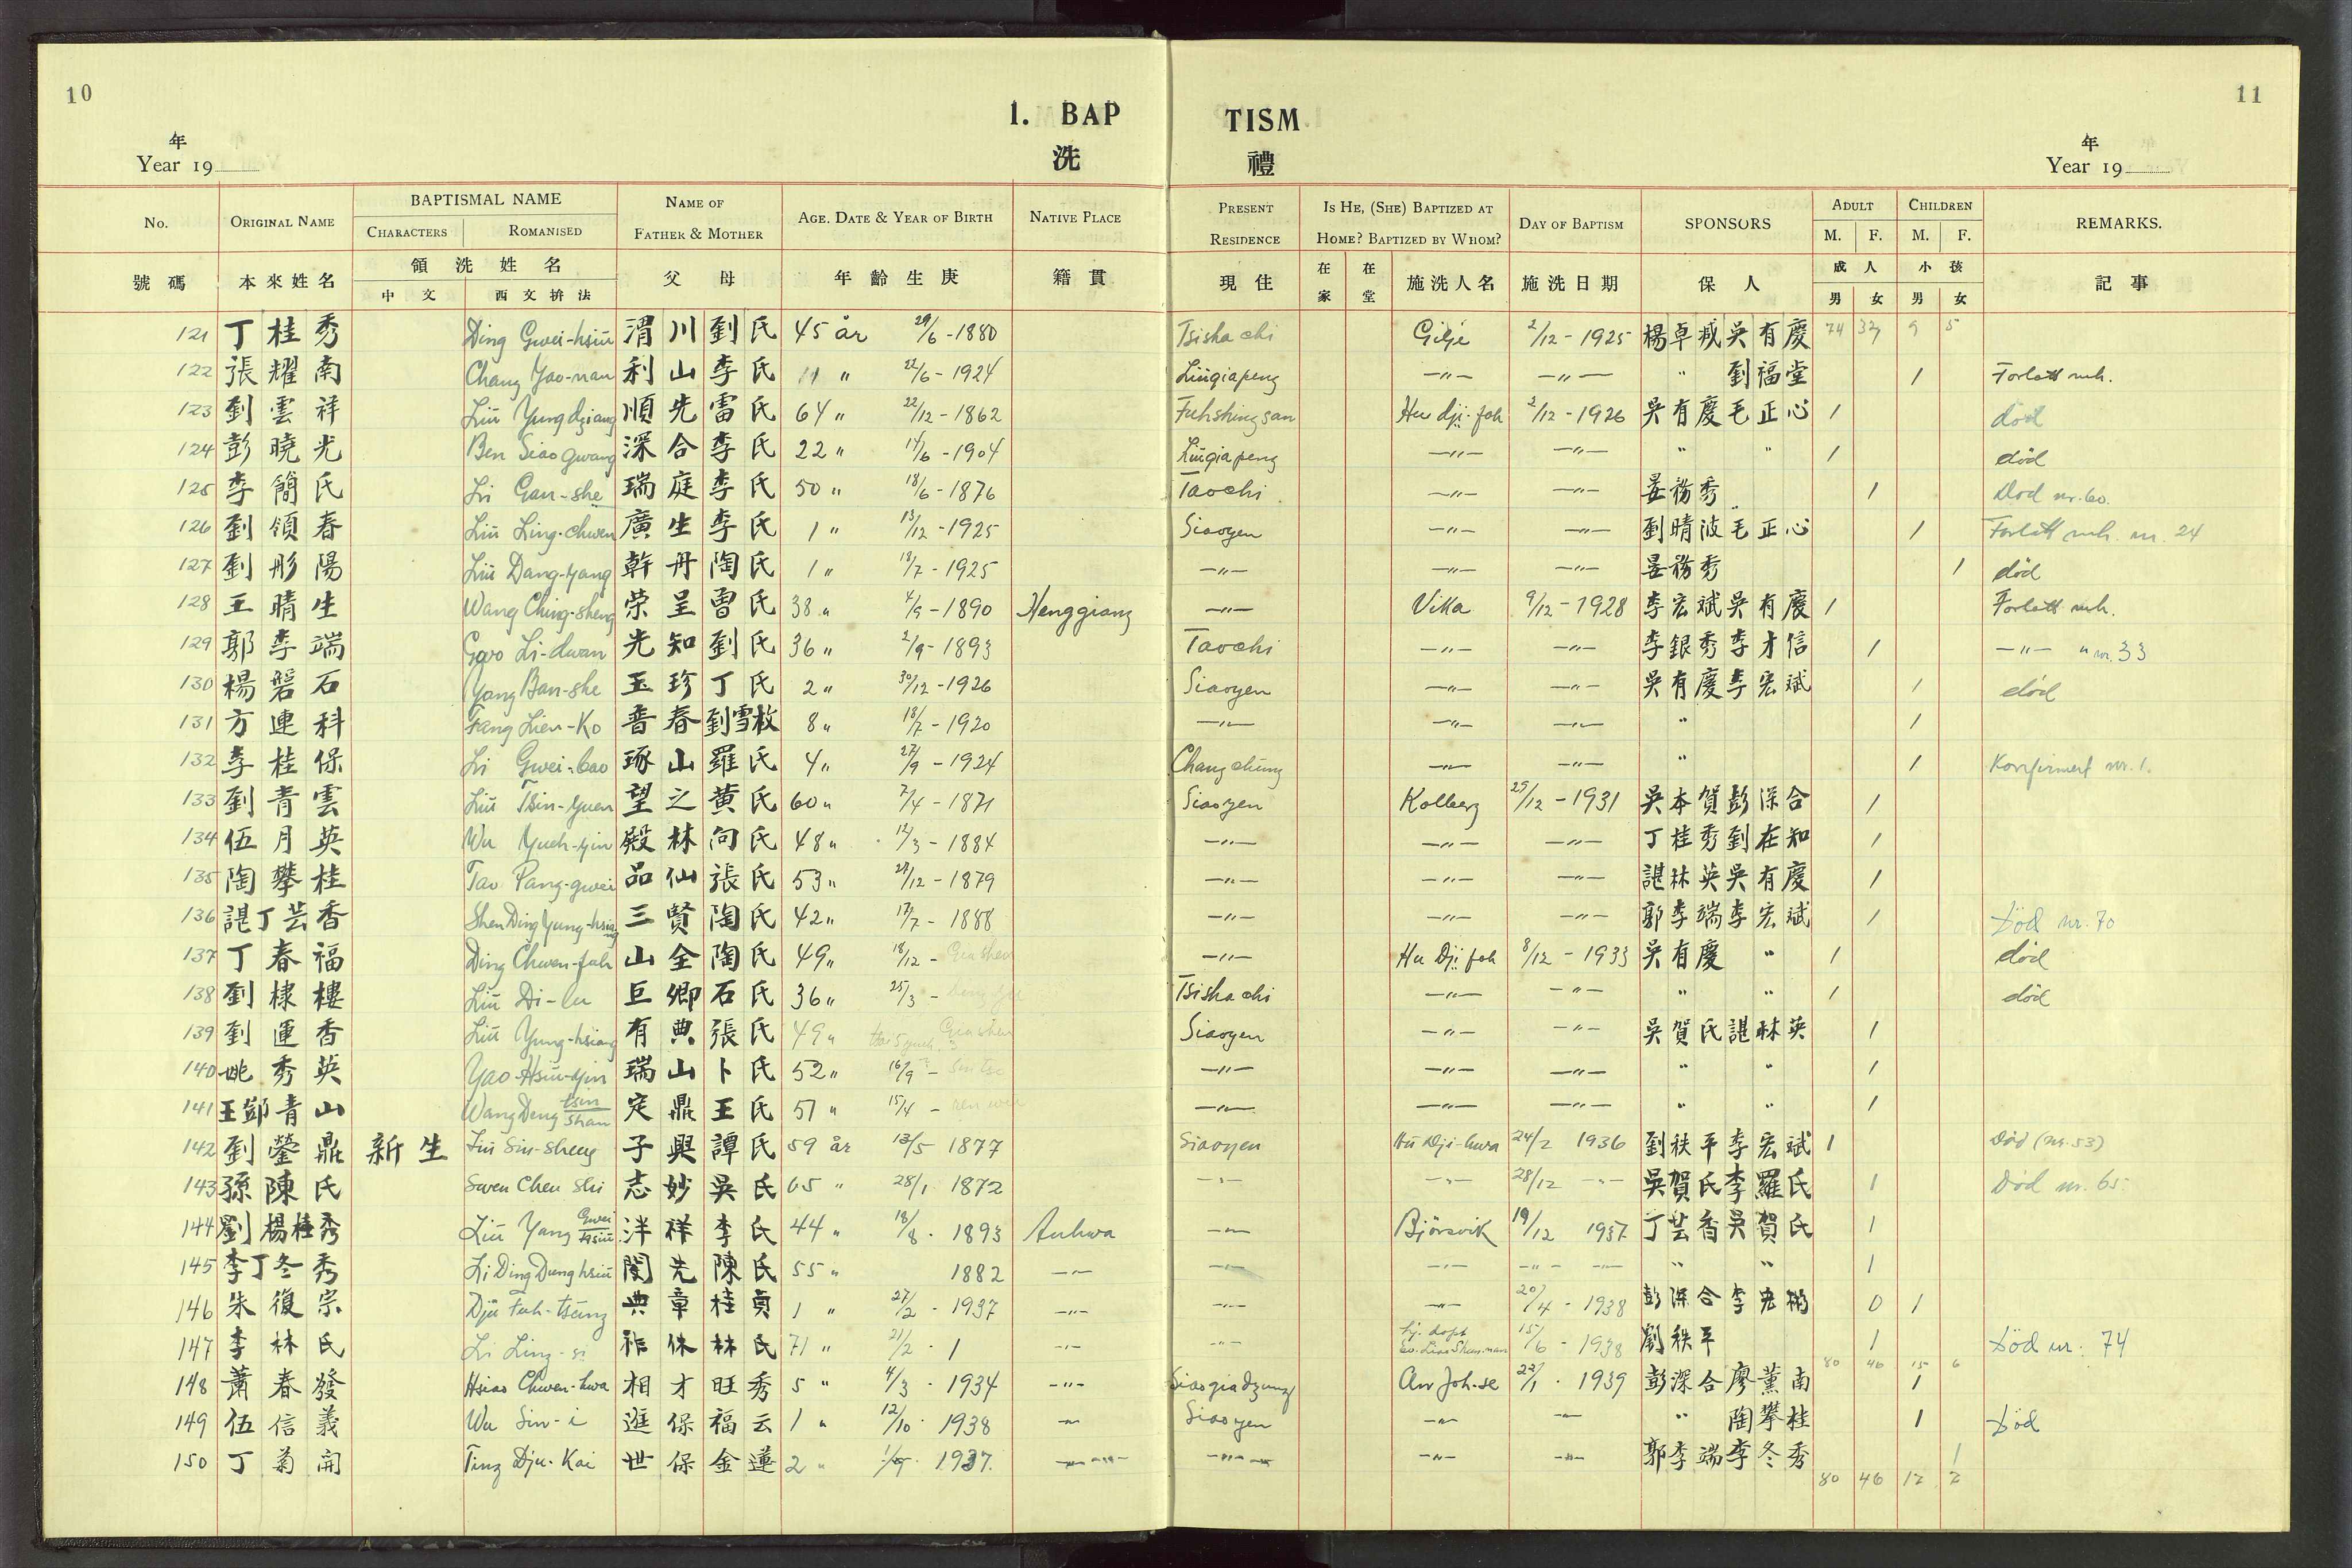 10
11
1. BAP TISM
洗 禮
年
Year 19
年
Year 19
No. ORIGINAL NAME BAPTISMAL NAME NAME OF FATHER & MOTHER AGE. DATE & YEAR OF BIRTH NATIVE PLACE PRESENT RESIDENCE IS HE, (SHE) BAPTIZED AT HOME? BAPTIZED BY WHOM? DAY OF BAPTISM SPONSORS ADULT CHILDREN REMARKS.
CHARACTERS ROMANISED M. F. M. F.
號碼 本來姓名 領洗姓名 父母 年齡生庚 籍貫 現住 在家 在堂 施洗人名 施洗日期 保人 成人 小孩 記事
中文 西文拚法 男 女 男 女
121 丁桂秀 Ding Gwei-hsiu 渭川 劉氏 45 år 29/6 - 1880 Tsisha chi Gilje 2/12 - 1925 楊卓 吳有慶 74 32 9 5
122 張耀南 Chang Yao-nan 利山 李氏 11 " 22/6 - 1924 Liugiapeng -"- -"- " 劉福堂 1 Forlatt mh.
123 劉雲祥 Liu Yung dziang 順先 雷氏 64 " 22/12 - 1862 Fuhshingsan Hu dji-foh 2/12 - 1926 吳有慶 毛正心 1 død
124 彭曉光 Ben Siao gwang 深合 李氏 22 " 14/6 - 1904 Liugiapeng -"- -"- " " 1 død
125 李簡氏 Li Gan-she 瑞庭 李氏 50 " 18/6 - 1876 Taochi -"- -"- 晏務秀 1 Død nr. 60.
126 劉領春 Liu Ling-chwen 廣生 李氏 1 " 13/12 - 1925 Siaoyen -"- -"- 劉晴波 毛正心 1 Forlatt mh. nr. 24
127 劉彤陽 Liu Dang-yang 幹丹 陶氏 1 " 18/7 - 1925 -"- -"- -"- 晏務秀 1 død
128 王晴生 Wang Ching-sheng 荣呈 曾氏 38 " 4/9 - 1890 Henggiang -"- Vikka 9/12 - 1928 李宏斌 吳有慶 1 Forlatt mh.
129 郭李端 Gwo Li-dwan 光知 劉氏 36 " 2/9 - 1893 Taochi -"- -"- 李銀秀 李才信 1 -"- " nr. 33
130 楊磐石 Yang Ban-she 玉珍 丁氏 2 " 30/12 - 1926 Siaoyen -"- -"- 吳有慶 李宏斌 1 død
131 方連科 Fang Lien-Ko 普春 劉雪枚 8 " 18/7 - 1920 -"- -"- -"- " 1
132 李桂保 Li Gwei-bao 琢山 羅氏 4 " 27/9 - 1924 Changchüng -"- -"- " 1 Konfirmert nr. 1.
133 劉青雲 Liu Tsin-yuen 望之 黄氏 60 " 7/4 - 1871 Siaoyen Kolberg 25/12 - 1931 吳本賀 彭深合 1
134 伍月英 Wu Yueh-yin 殿林 向氏 48 " 12/3 - 1884 -"- -"- -"- 丁桂秀 劉在知 1
135 陶攀桂 Tao Pang-gwei 品仙 張氏 53 " 27/12 - 1879 -"- -"- -"- 諶林英 吳有慶 1
136 諶丁芸香 Shen Ding Yung-hsiang 三賢 陶氏 42 " 17/7 - 1888 -"- -"- -"- 郭李端 李宏斌 1 Død nr. 70
137 丁春福 Ding Chwen-fuh 山全 陶氏 49 " 18/12 - Gia shen -"- Hu Dji foh 8/12 - 1933 吳有慶 " 1 død
138 劉棣樓 Liu Di-lu 巨卿 石氏 36 " 25/3 - Tsisha chi -"- -"- " " 1 død
139 劉運香 Liu Yung-hsiang 有典 張氏 49 " Siaoyen -"- -"- 吳賀氏 諶林英 1
140 姚秀英 Yao-Hsiu-yin 瑞山 卜氏 52 " 16/9 - -"- -"- -"- " " 1
141 王鄧青山 Wang Deng tsin shan 定鼎 王氏 51 " 15/4 - -"- -"- -"- " " 1
142 劉鎣鼎 新生 Liu Sin-sheng 子興 譚氏 59 år 13/5 1877 Siaoyen Hu Dji-hwa 24/2 1936 劉秩平 李宏斌 1 Død (nr. 53)
143 孫陳氏 Swen Chen Shi 志妙 吳氏 65 " 28/1 1872 -"- -"- 28/12 -"- 吳賀氏 李羅氏 1 Død nr. 65
144 劉楊桂秀 Liu Yang Gwei hsiu 泮祥 李氏 44 " 18/8 - 1893 Anhwa -"- Bjørsvik 19/12 1937 丁芸香 吳賀氏 1
145 李丁冬秀 Li Ding Dung hsiu 閔先 陳氏 55 " 1882 -"- -"- -"- -"- -"- " " 1
146 朱復宗 Dju Fuh-tsung 典章 桂貞 1 " 27/2 - 1937 -"- -"- -"- 20/4 - 1938 彭深合 李宏 0 1
147 李林氏 Li Ling-si 林氏 71 " 21/2 - 1 -"- -"- hj. døpt 15/6 - 1938 劉秩平 1 Død nr. 74
80 46 15 6
148 蕭春發 Hsiao Chwen-hwa 相才 旺秀 5 " 4/3 - 1934 -"- Siaogiadzung An Joh-se 22/1 - 1939 彭深合 廖薰南 1
149 伍信義 Wu Sin-i 進保 福云 1 " 12/10 - 1938 -"- Siaoyen -"- -"- " 陶攀桂 1 Død
150 丁菊開 Ting Dju-Kai 世保 金蓮 2 " 1/9 - 1937. -"- -"- -"- -"- 郭李端 李冬秀 1
80 46 17 7